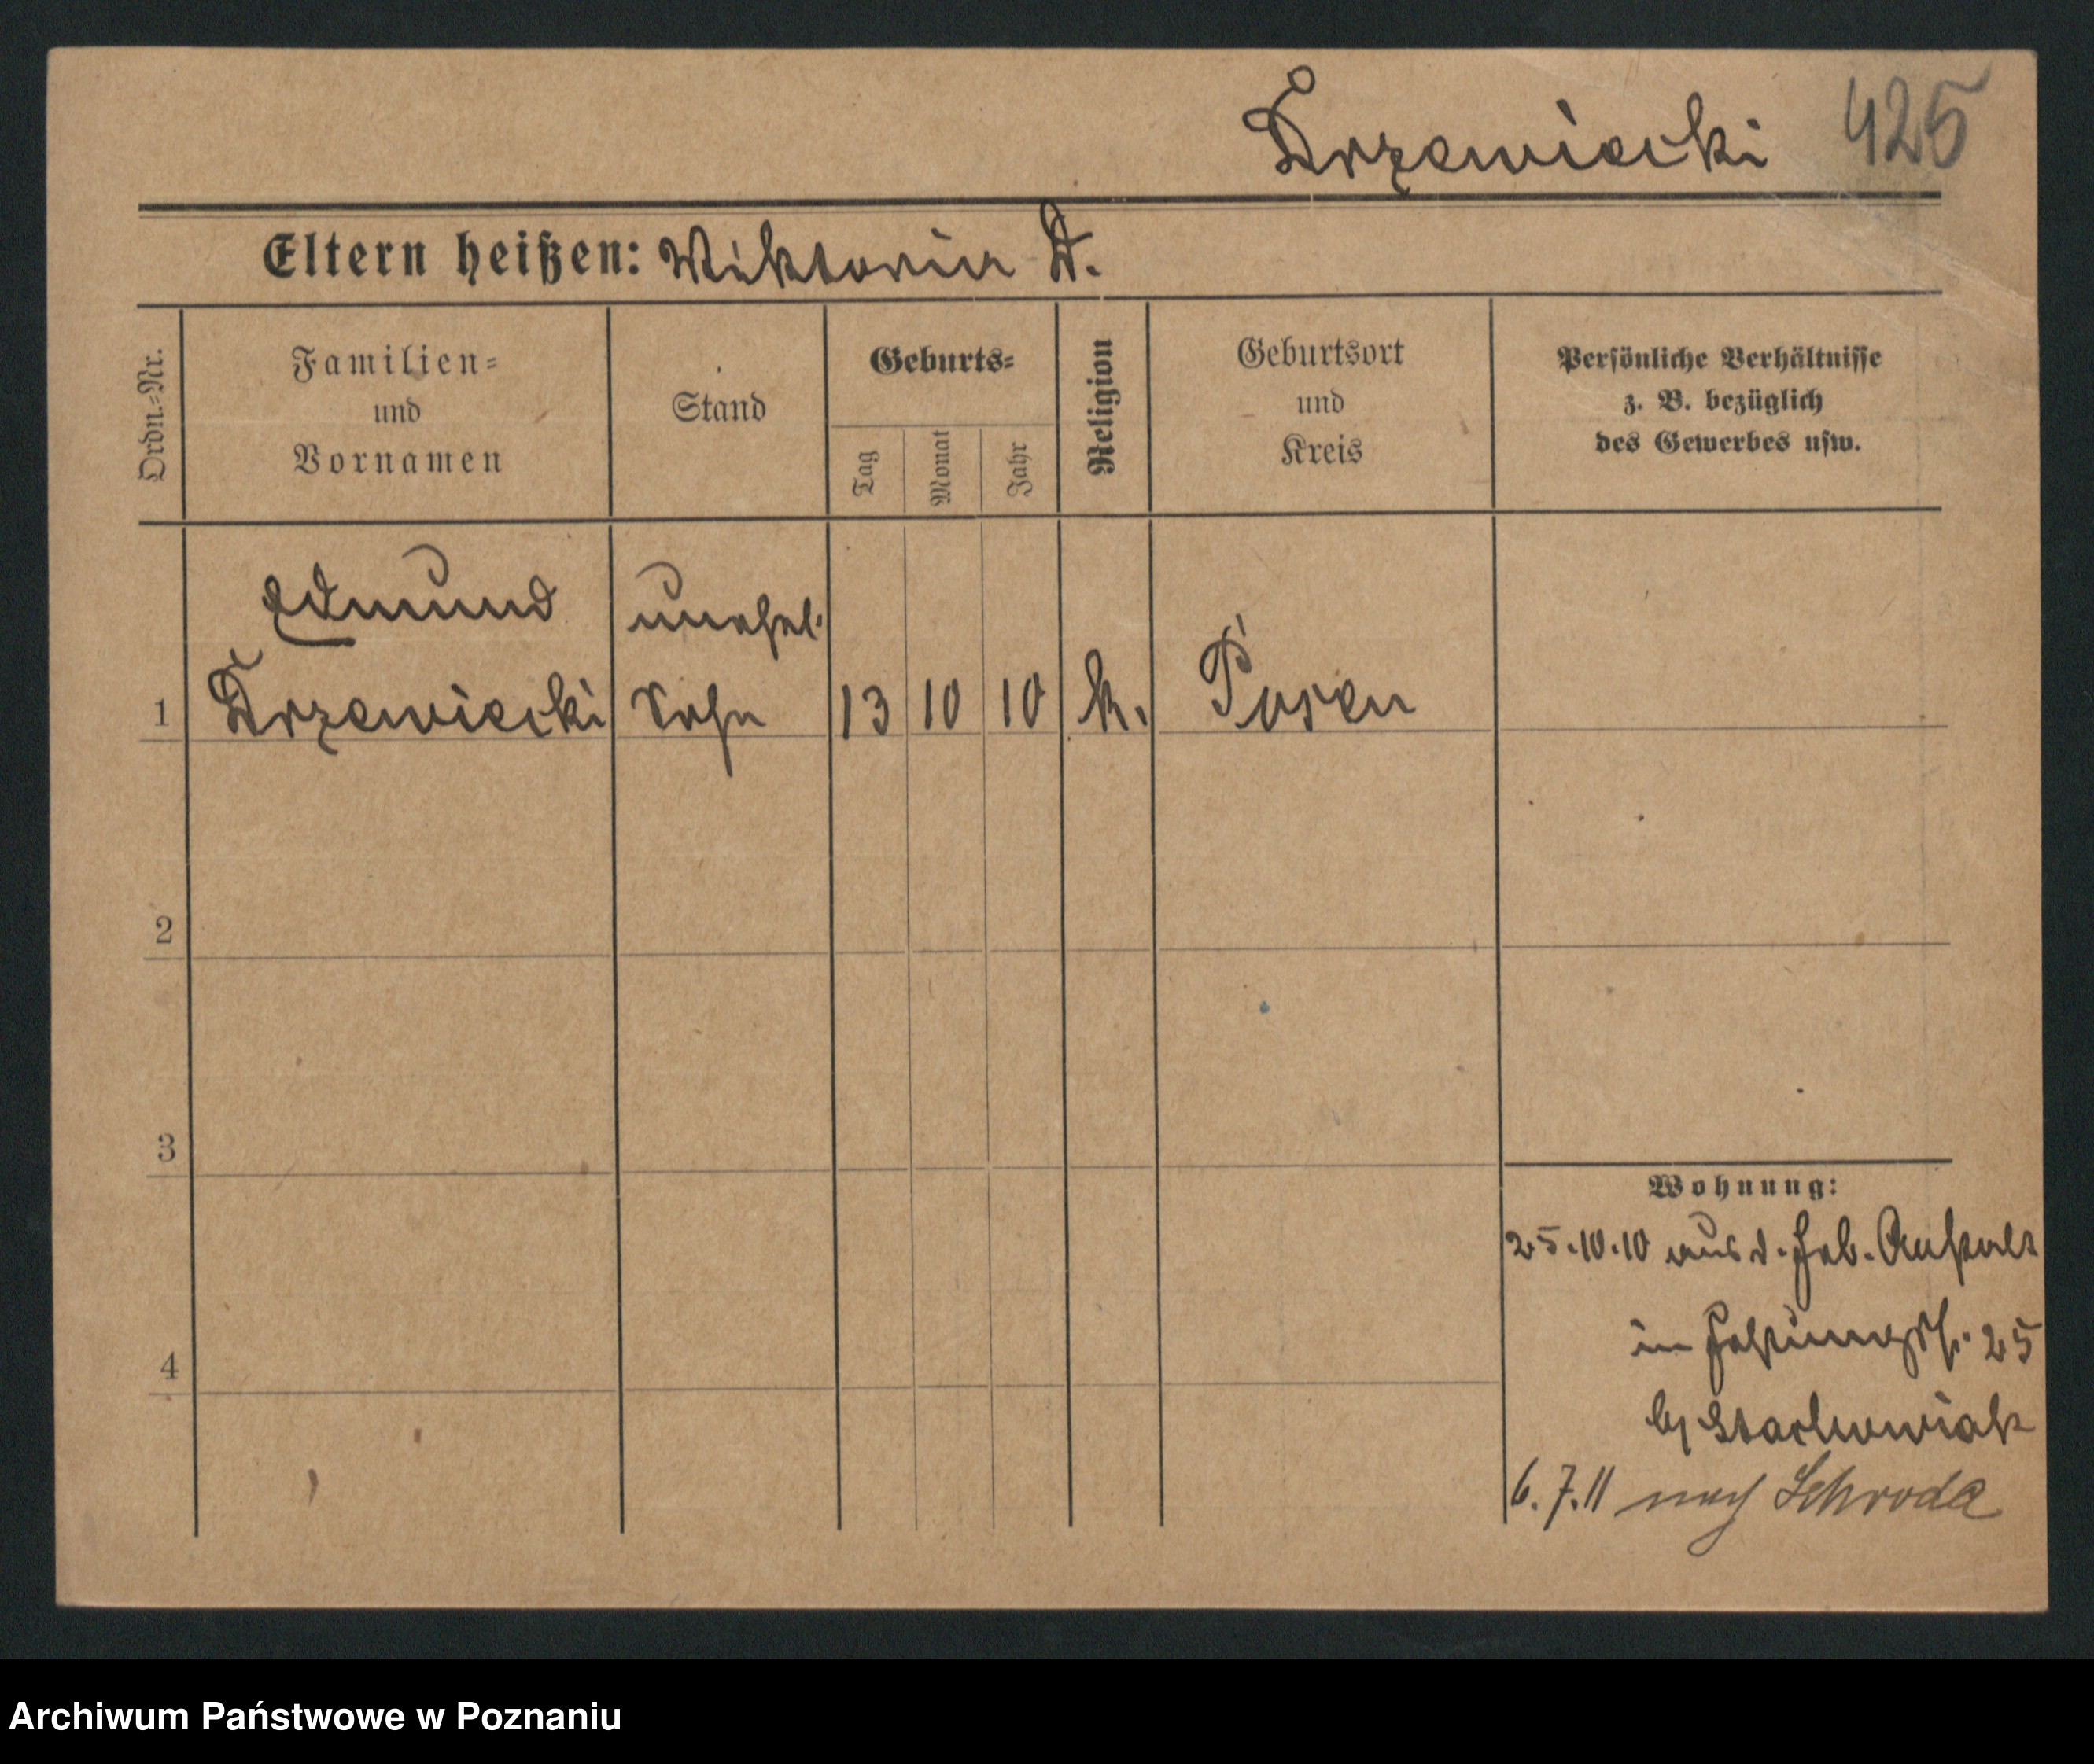 Drzewiecki 425
Eltern heißen: Wiktoria D.
Ordn.-Nr.
Familien-
und
Vornamen
Stand
Geburts-
Tag
Monat
Jahr
Religion
Geburtsort
und
Kreis
Persönliche Verhältnisse
z. B. bezüglich
des Gewerbes usw.
Edmund unehel.
1 Drzewiecki Sohn 13 10 10 k. Posen
2
3
4
Wohnung:
25.10.10 aus d. Geb. Anstalt
in 25
b/ Stachowiak
6.7.11 nach Schroda
Archiwum Państwowe w Poznaniu